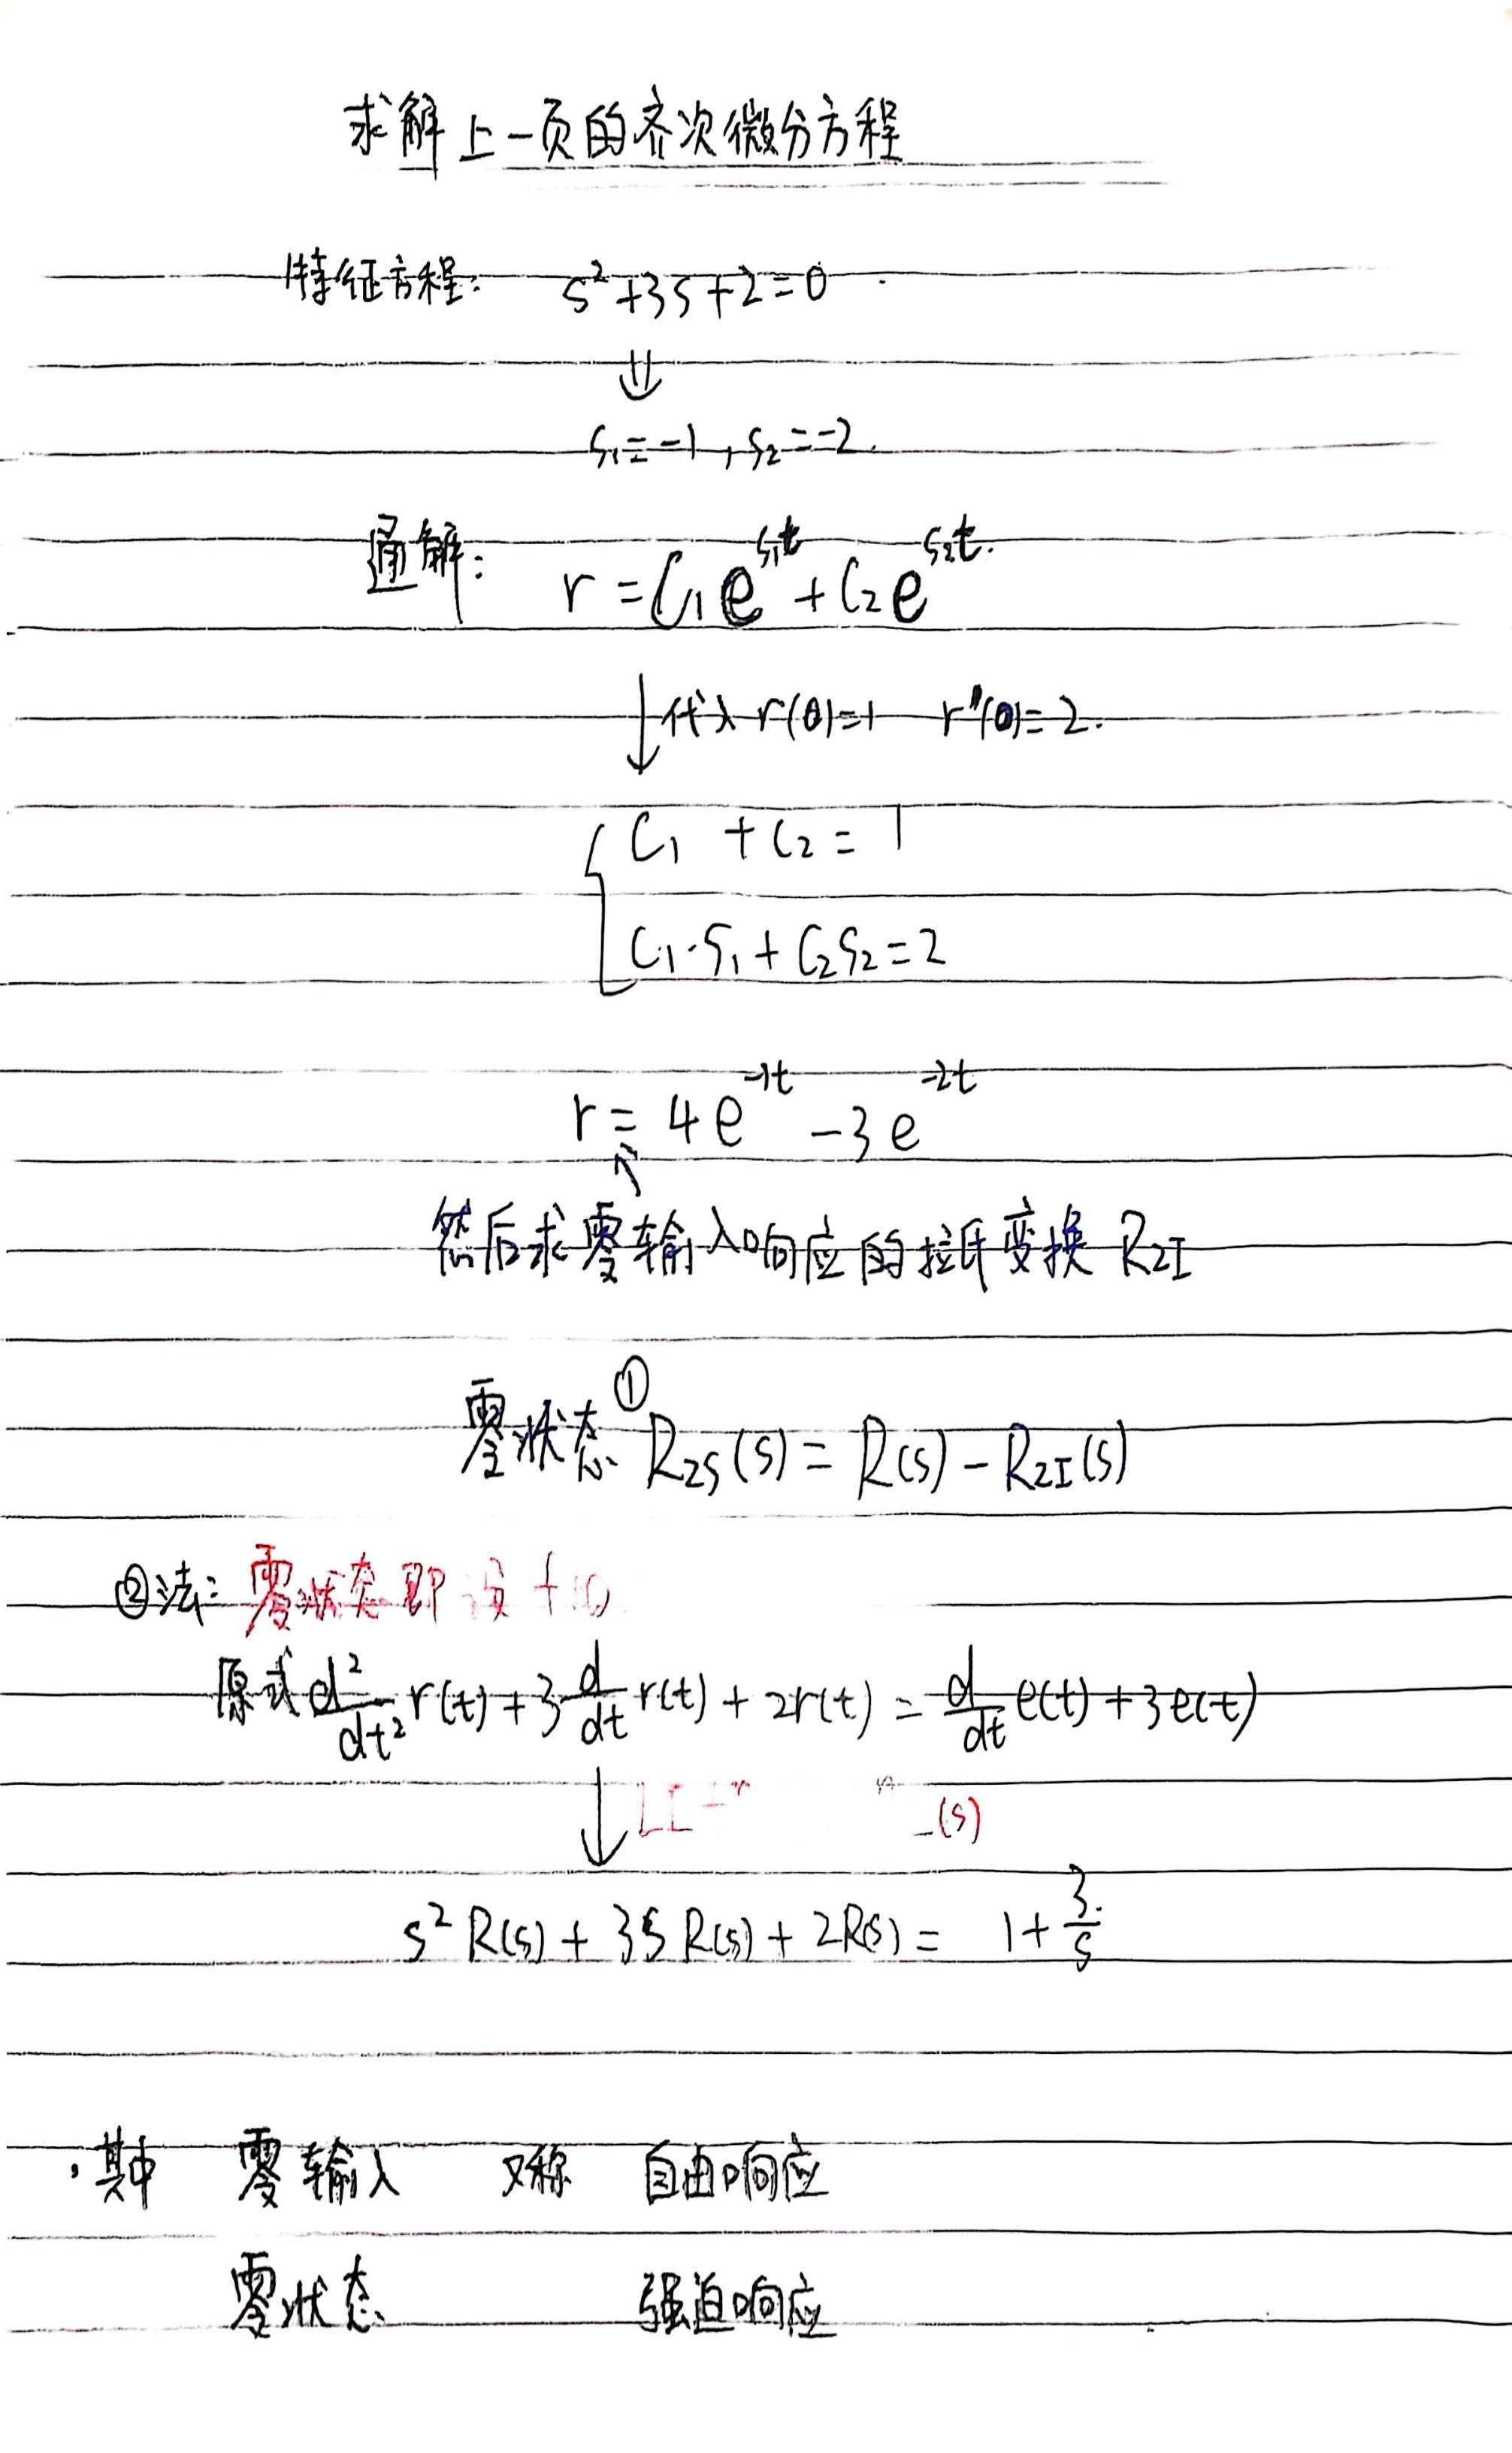 求解上一页的齐次微分方程
特征方程: s²+3s+2=0
⇓
s₁=-1, s₂=-2.
通解: r=C₁e^{s₁t}+C₂e^{s₂t}.
↓代入 r(0)=1 r'(0)=2.
{ C₁+C₂=1
C₁·S₁+C₂S₂=2
r=4e^{-1t}-3e^{-2t}
↑
然后求零输入响应的拉氏变换 R_{ZI}
①
零状态 R_{ZS}(s)=R(s)-R_{ZI}(s)
②法: 零状态即
原式 d²/dt² r(t)+3 d/dt r(t)+2r(t)= d/dt e(t)+3e(t)
↓ (s)
s²R(s)+3sR(s)+2R(s)= 1+3/s
·其中 零输入 又称 自由响应
零状态 强迫响应